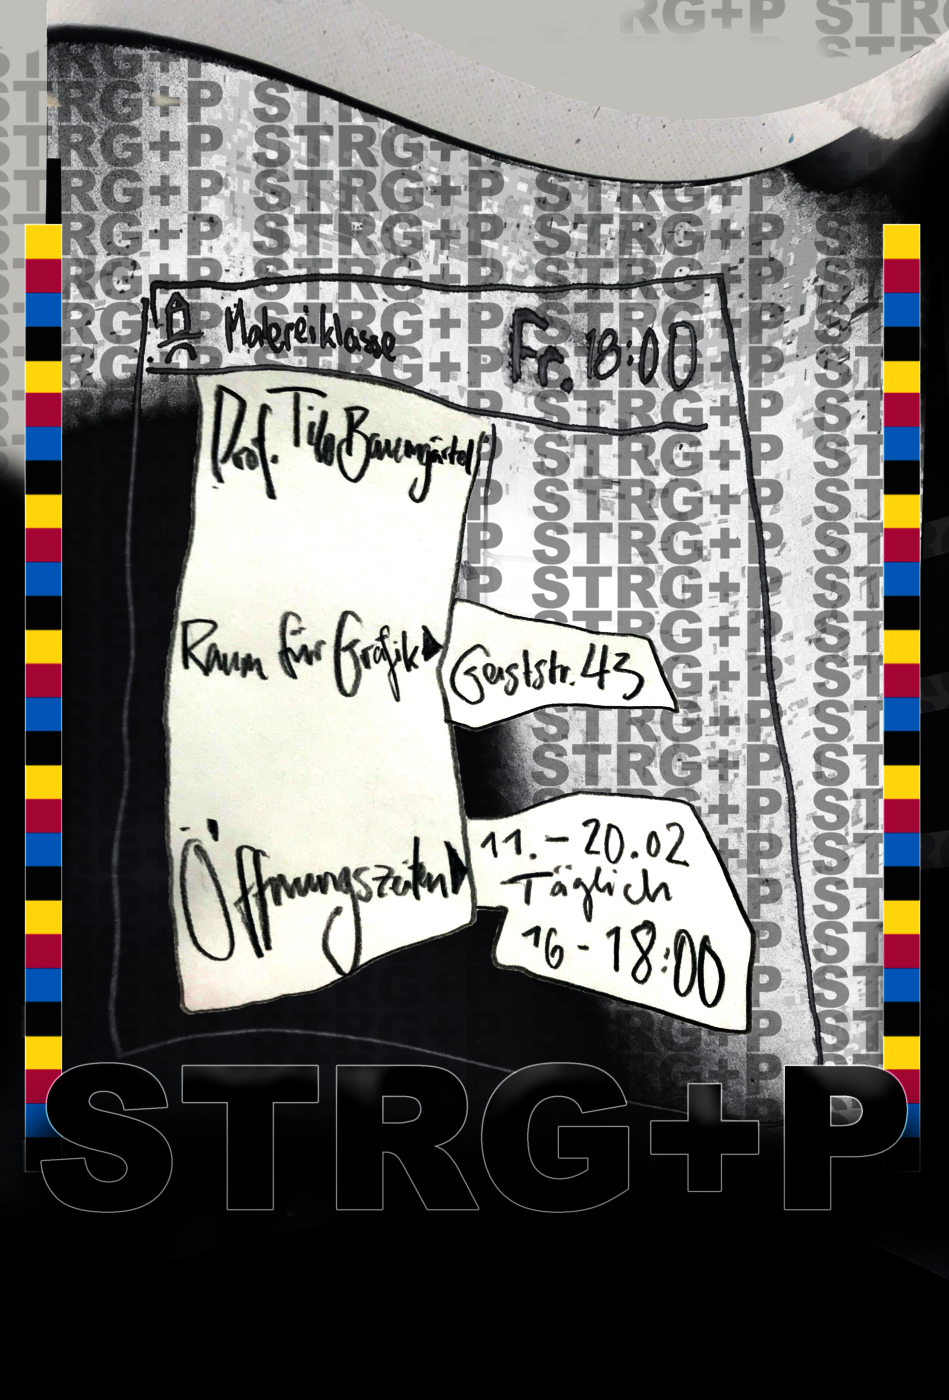 STRG+P STRG+P
Malereiklasse
Fr. 18:00
Prof. Tilo Baumgärtel
Raum für Grafik
Geiststr. 43
Öffnungszeiten
11. - 20.02
Täglich
16 - 18:00
STRG+P